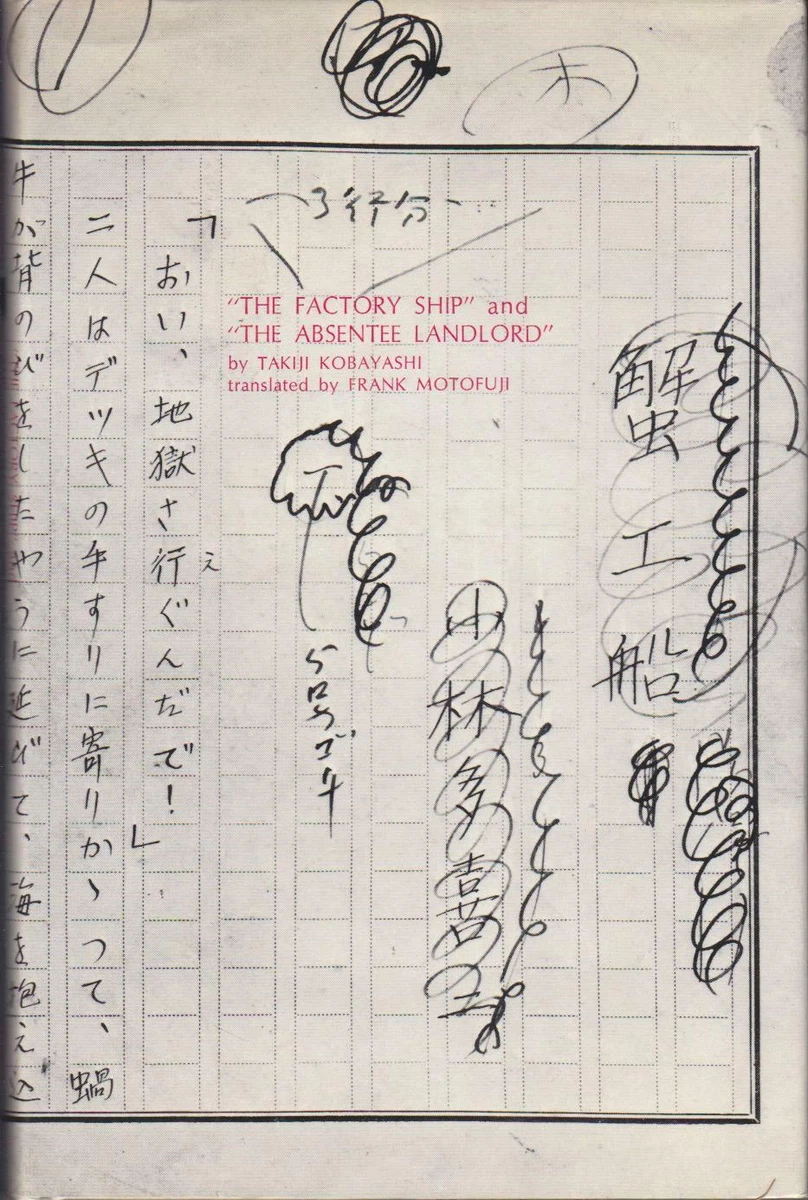 蟹工船
小林多喜二
3行分
"THE FACTORY SHIP" and
"THE ABSENTEE LANDLORD"
by TAKIJI KOBAYASHI
translated by FRANK MOTOFUJI
「おい、地獄さ行ぐんだで!」
え
二人はデツキの手すりに寄りかゝつて、蝸
牛が背のびをしたやうに延びて、海を抱え込